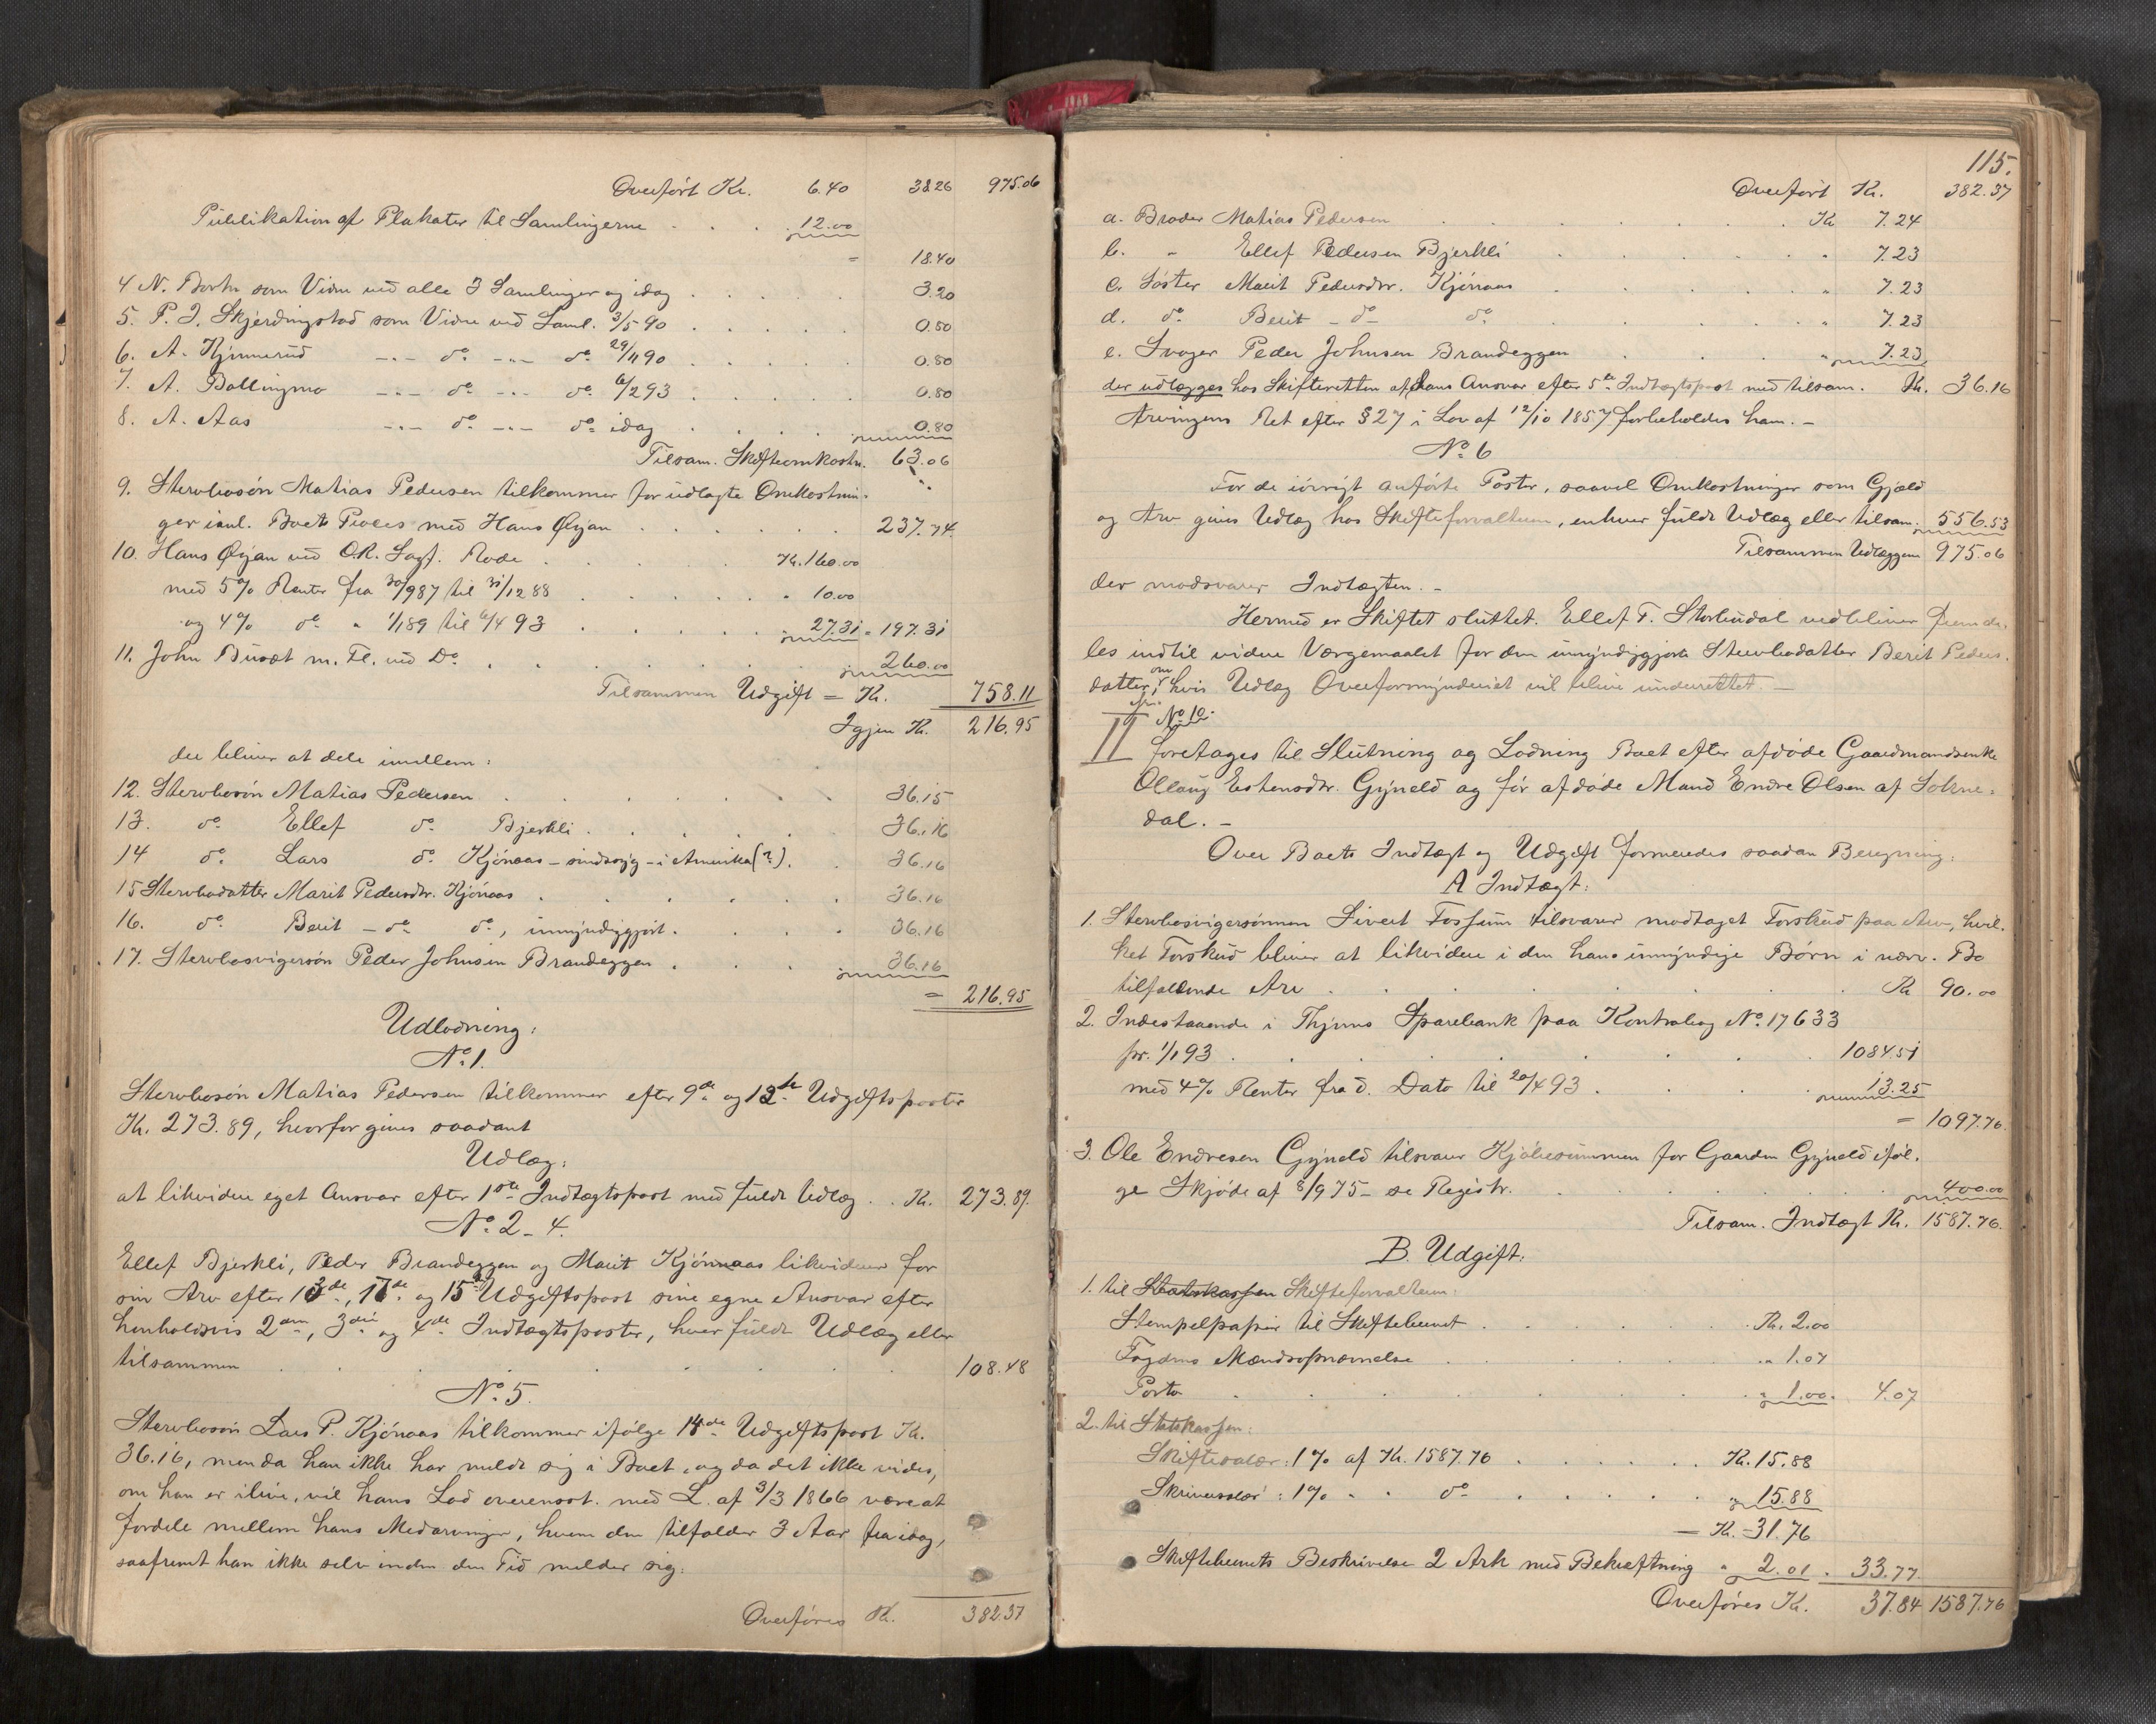 Overført Kr. 6.40 38.26 975.06
Publikation af Plakater til Samlingerne . . . 12.00
= 18.40
4 N. Borhn som Vidne ved alle 3 Samlinger og idag . . . 3.20
5. P. J. Skjerdingstad som Vidne ved Saml. 3/5 90 . . . 0.80
6. A. Kjinnerud -"- do -"- do 29/11 90 . . . 0.80
7. A. Ballingmo -"- do -"- do 6/2 93 . . . 0.80
8. A. Aas -"- do -"- do idag . . . 0.80
Tilsam. Skifteomkostn. 63.06
9. Stervbosøn Matias Pedersen tilkommer for udlagte Omkostnin-
ger isul. Boets Proces med Hans Øijan . . . 237.74
10. Hans Øijan ved O.R. Sagf. Rode . . . Kr. 160.00
med 5% Renter fra 30/9 87 til 31/12 88 . . . " 10.00
og 4% do " 1/1 89 til 6/4 93 . . . 27.31 = 197.31
11. John Busæt m. Fl. ved Do . . . 260.00
Tilsammen Udgift = Kr. 758.11
Igjen Kr. 216.95
der bliver at dele imellem:
12. Stervbosøn Matias Pedersen . . . 36.15
13. do Ellef do Bjerkli . . . 36.16
14 do Lars do Kjønaas - sindssyg - i Amerika (?) . 36.16
15 Stervbodatter Marit Pedersdtr. Kjønaas . . . 36.16
16. do Berit - do do, umyndiggjort . . . 36.16
17. Stervbosvigersøn Peder Johnsen Brandeggen . . . 36.16
= 216.95
Udlodning:
No. 1.
Stervbosøn Matias Pedersen tilkommer efter 9de og 12te Udgiftsposter
Kr. 273.89, hvorfor gives saadant
Udlæg:
at likvidere eget Ansvar efter 1ste Indtægtspost med fuldt Udlæg . . Kr. 273.89.
No. 2 - 4.
Ellef Bjerkli, Peder Brandeggen og Marit Kjønaas likviderer for
sin Arv efter 13de, 17de og 15de Udgiftspost sine egne Ansvar efter
henholdsvis 2den, 3die og 4de Indtægtsposter, hver fuldt Udlæg eller
tilsammen . . . 108.48
No. 5.
Stervbosøn Lars P. Kjønaas tilkommer ifølge 14de Udgiftspost Kr.
36.16, men da han ikke har meldt sig i Boet, og da det ikke vides,
om han er ilive, vil hans Lod overensst. med L. af 3/3 1866 være at
fordele mellem hans Medarvinger, hvem den tilfalder 3 Aar fra idag,
saafremt han ikke selv inden den Tid melder sig.
Overføres Kr. 382.37
115.
Overført Kr. 382.37
a. Broder Matias Pedersen . . . Kr 7.24
b. " Ellef Pedersen Bjerkli . . . " 7.23
c. Søster Marit Pedersdtr. Kjønaas . . . " 7.23
d. do Berit - do - do . . . " 7.23
e. Svoger Peder Johnsen Brandeggen . . . " 7.23
der udlægges hos Skifteretten af hans Ansvar efter 5te Indtægtspost med tilsam. Kr. 36.16
Arvingens Ret efter § 27 i Lov af 12/10 1857 forbeholdes ham. -
No. 6
For de iøvrigt anførte Poster, saavel Omkostninger som Gjæld
og Arv gives Udlæg hos Skifteforvalteren, enhver fuldt Udlæg eller tilsam. 556.53
Tilsammen Udlæggene 975.06
der modsvarer Indtægten. -
Hermed er Skiftet sluttet. Ellef T. Storbudal vedbliver fremde-
les indtil videre Værgemaalet for den umyndiggjorte Stervbodatter Berit Peders-
datter, om hvis Udlæg Overformynderiet vil blive underrettet. -
II No. 10.
foretages til Slutning og Lodning Boet efter afdøde Gaardmandsenke
Ollaug Estensdtr. Gyneld og før afdøde Mand Endre Olsen af Sokne-
dal. -
Over Boets Indtægt og Udgift formeredes saadan Beregning:
A Indtægt:
1. Stervbosvigersønnen Sivert Fossum tilsvarer modtaget Forskud paa Arv, hvil-
ket Forskud bliver at likvidere i den hans umyndige Børn i nærv. Bo
tilfaldende Arv . . . Kr 90.00
2. Indestaaende i Thjems Sparebank paa Kontrabog No. 17633
pr. 1/1 93 . . . 1084.51
med 4% Renter fra d. Dato til 20/4 93 . . . 13.25
= 1097.76.
3. Ole Endresen Gyneld tilsvarer Kjøbesummen for Gaarden Gyneld iføl-
ge Skjøde af 8/9 75 - se Registr. . . . 400.00
Tilsam. Indtægt Kr. 1587.76.
B. Udgift:
1. til Statskassen Skifteforvalteren:
Stempelpapir til Skiftebrevet . . . Kr. 2.00
Fogdens Mændsopnævnelse . . . " 1.07
Porto . . . " 1.00. 4.07
2. til Statskassen:
Skiftesalær: 1% af Kr. 1587.76 . . . Kr. 15.88
Skriversalær: 1% " " do . . . " 15.88
- Kr. 31.76
Skiftebrevets Beskrivelse 2 Ark med Bekræftning " 2.01 . 33.77.
Overføres Kr. 37.84 1587.76